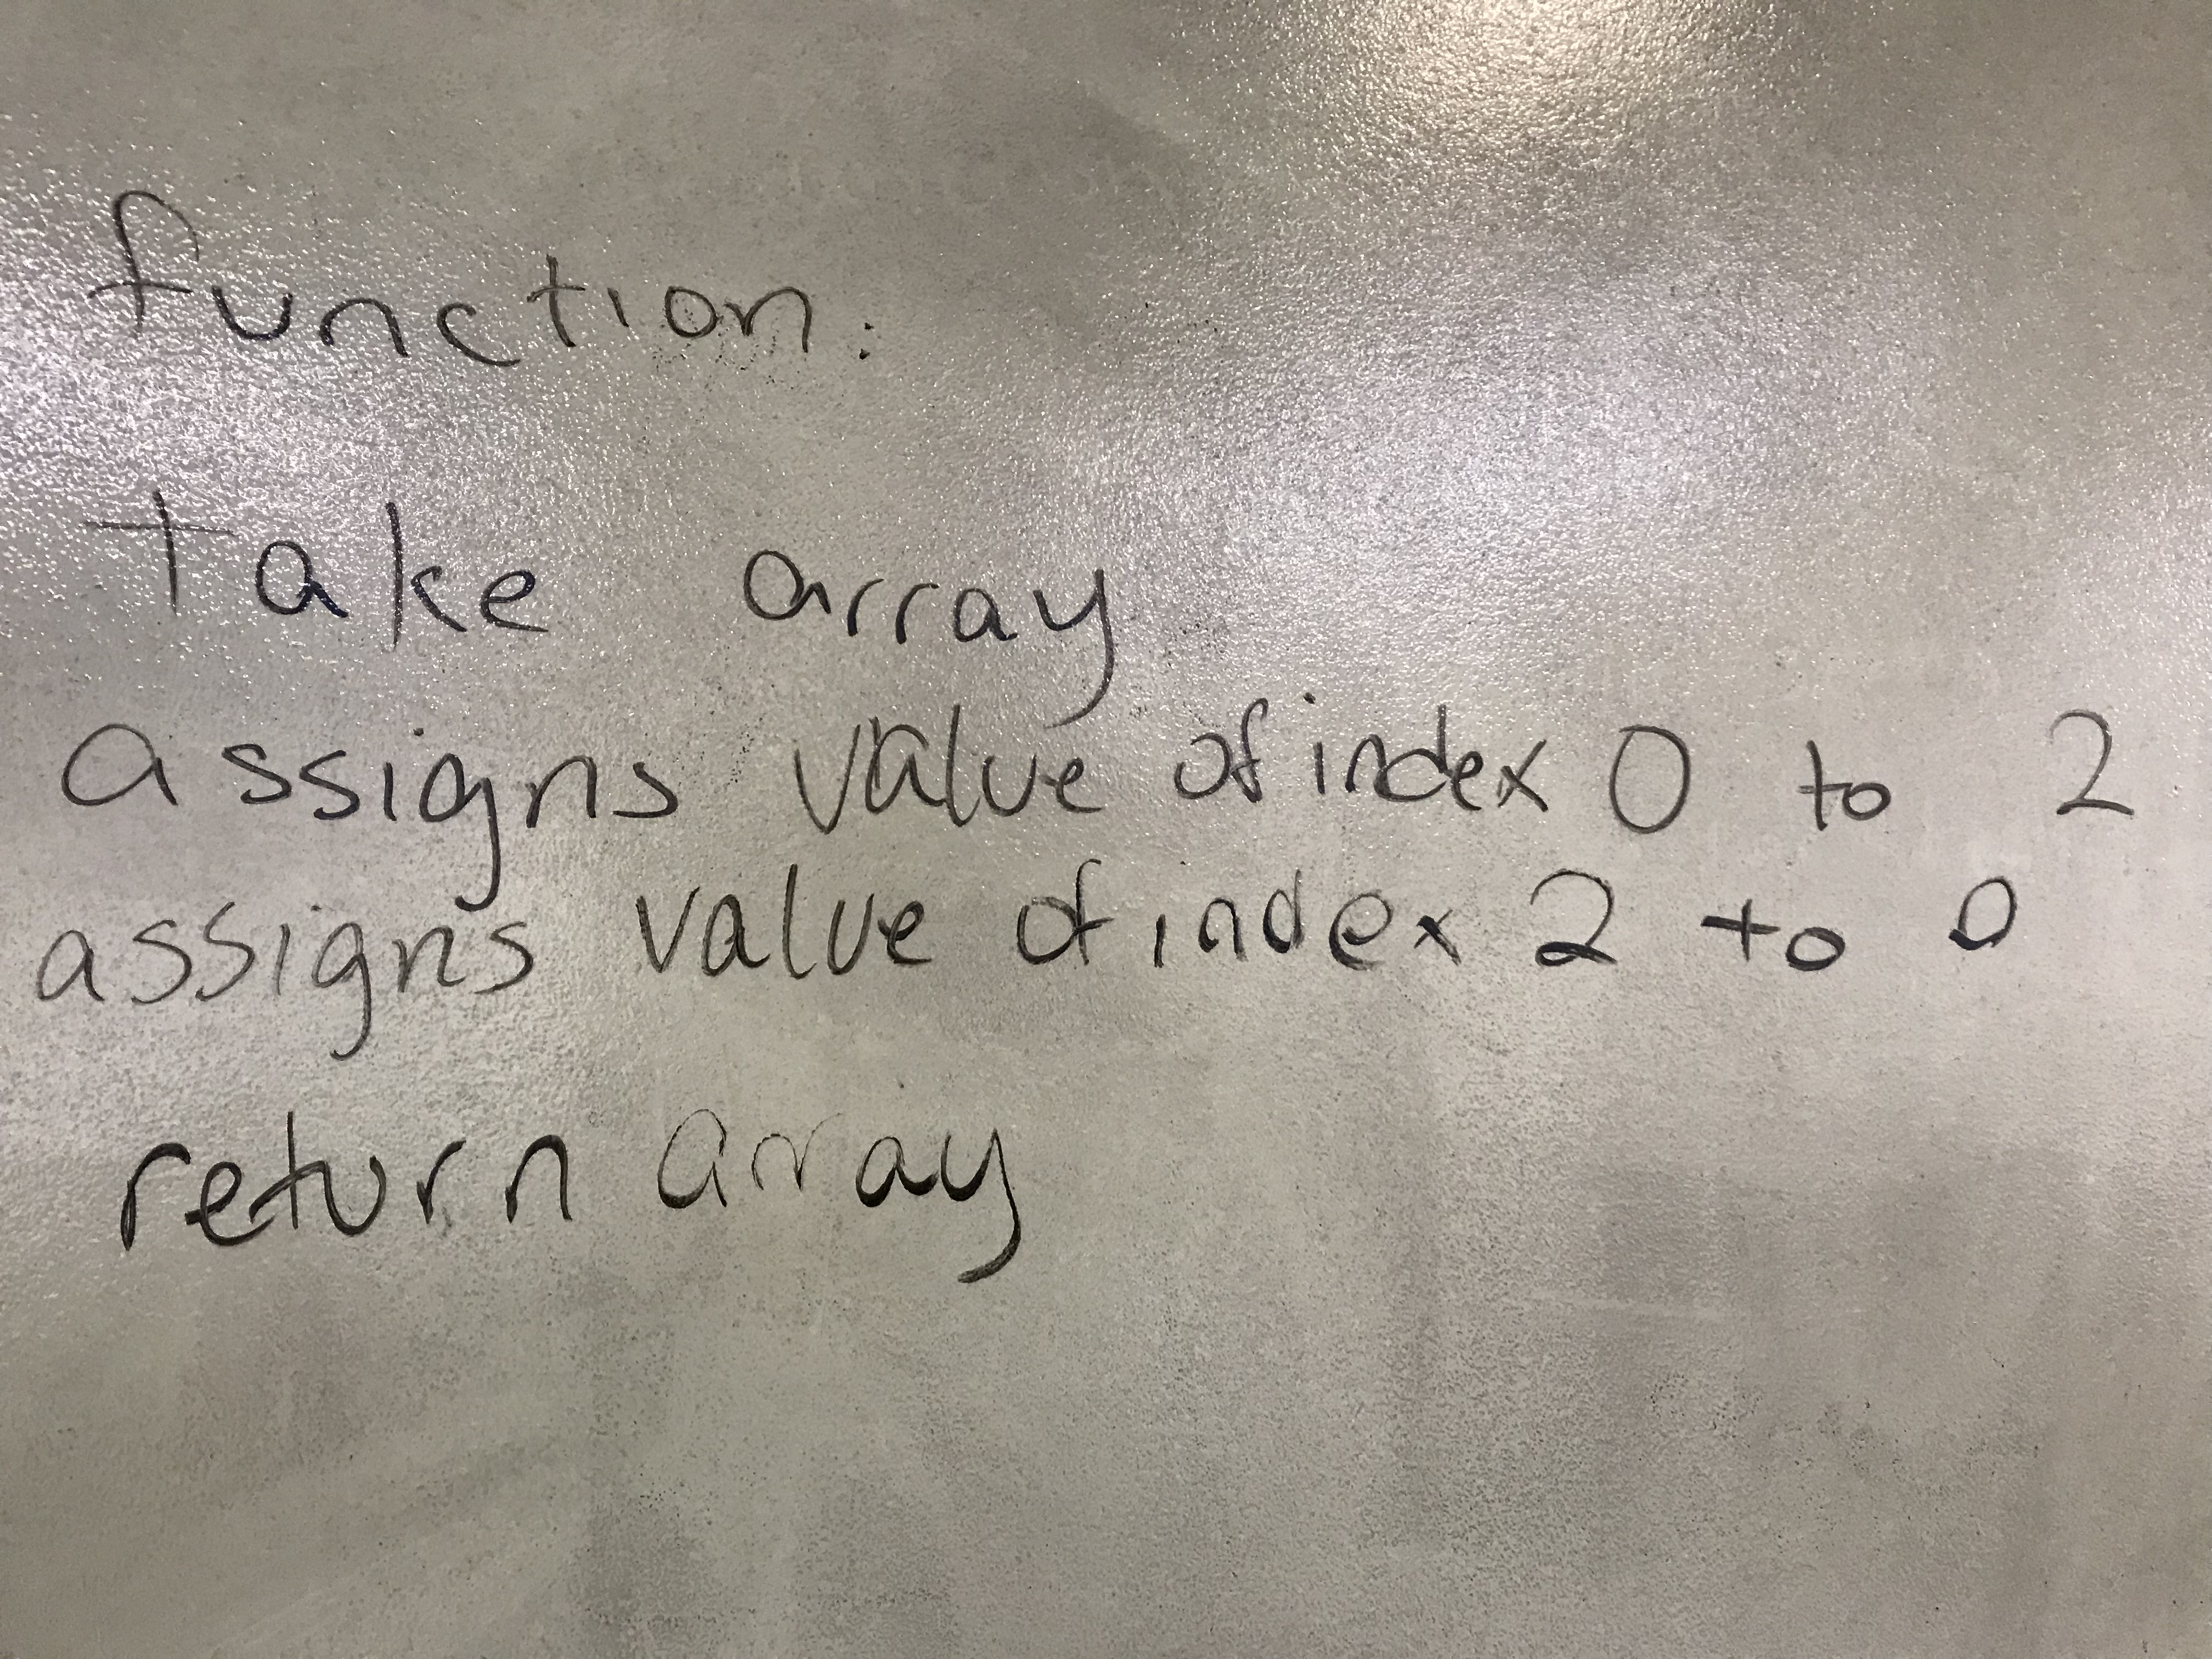 function:
Take array
assigns value of index 0 to 2
assigns value of index 2 to 0
return array